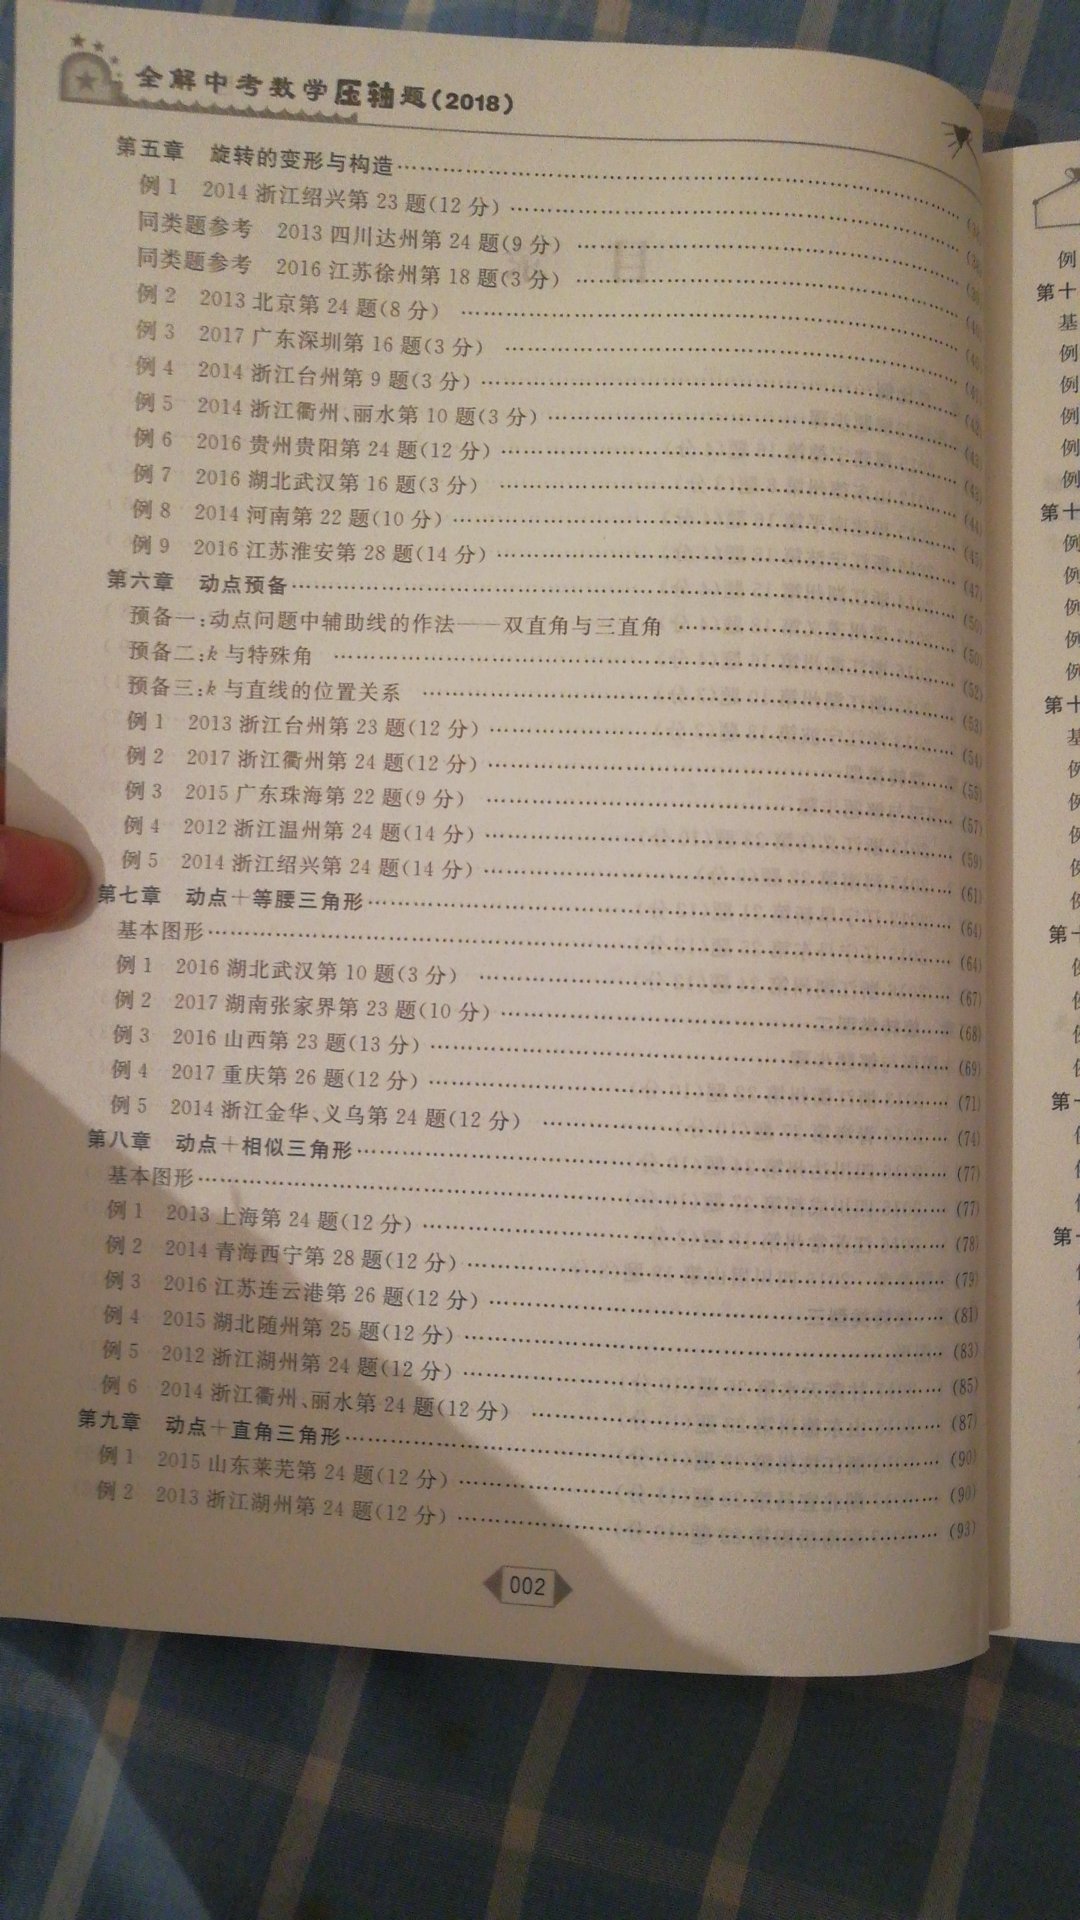 全解中考数学压轴题(2018)
第五章 旋转的变形与构造
例1 2014 浙江绍兴第 23 题(12 分)
同类题参考 2013 四川达州第 24 题(9 分)
同类题参考 2016 江苏徐州第 18 题(3 分)
例2 2013 北京第 24 题(8 分)
例3 2017 广东深圳第 16 题(3 分)
例4 2014 浙江台州第 9 题(3 分)
例5 2014 浙江衢州、丽水第 10 题(3 分)
例6 2016 贵州贵阳第 24 题(12 分)
例7 2016 湖北武汉第 16 题(3 分)
例8 2014 河南第 22 题(10 分)
例9 2016 江苏淮安第 28 题(14 分)
第六章 动点预备
预备一:动点问题中辅助线的作法——双直角与三直角 (50)
预备二:k 与特殊角 (52)
预备三:k 与直线的位置关系 (53)
例1 2013 浙江台州第 23 题(12 分) (54)
例2 2017 浙江衢州第 24 题(12 分) (55)
例3 2015 广东珠海第 22 题(9 分) (57)
例4 2012 浙江温州第 24 题(14 分) (59)
例5 2014 浙江绍兴第 24 题(14 分) (61)
第七章 动点+等腰三角形 (64)
基本图形 (64)
例1 2016 湖北武汉第 10 题(3 分) (67)
例2 2017 湖南张家界第 23 题(10 分) (68)
例3 2016 山西第 23 题(13 分) (69)
例4 2017 重庆第 26 题(12 分) (71)
例5 2014 浙江金华、义乌第 24 题(12 分) (74)
第八章 动点+相似三角形 (77)
基本图形 (77)
例1 2013 上海第 24 题(12 分) (78)
例2 2014 青海西宁第 28 题(12 分) (79)
例3 2016 江苏连云港第 26 题(12 分) (81)
例4 2015 湖北随州第 25 题(12 分) (83)
例5 2012 浙江湖州第 24 题(12 分) (85)
例6 2014 浙江衢州、丽水第 24 题(12 分) (87)
第九章 动点+直角三角形 (90)
例1 2015 山东莱芜第 24 题(12 分) (90)
例2 2013 浙江湖州第 24 题(12 分) (93)
002
例
第十
基
例
例
例
例
例
第十
例
例
例
例
例
第十